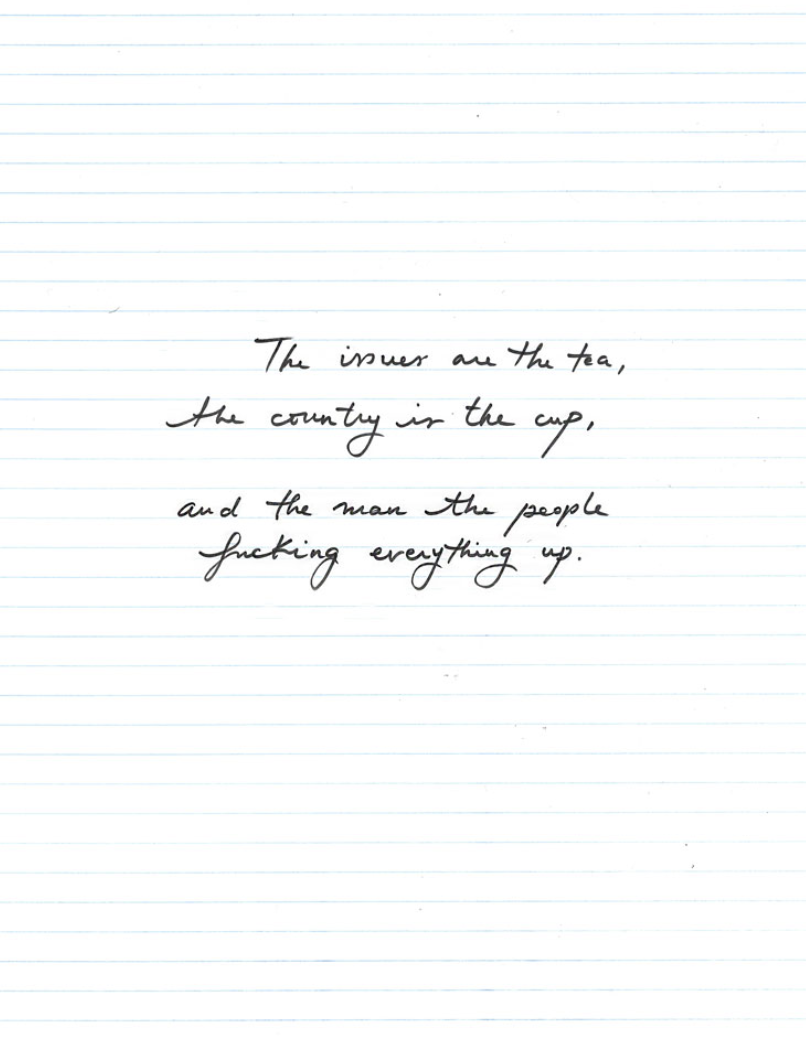 The issues are the tea,
the country is the cup,
and the man the people
fucking everything up.